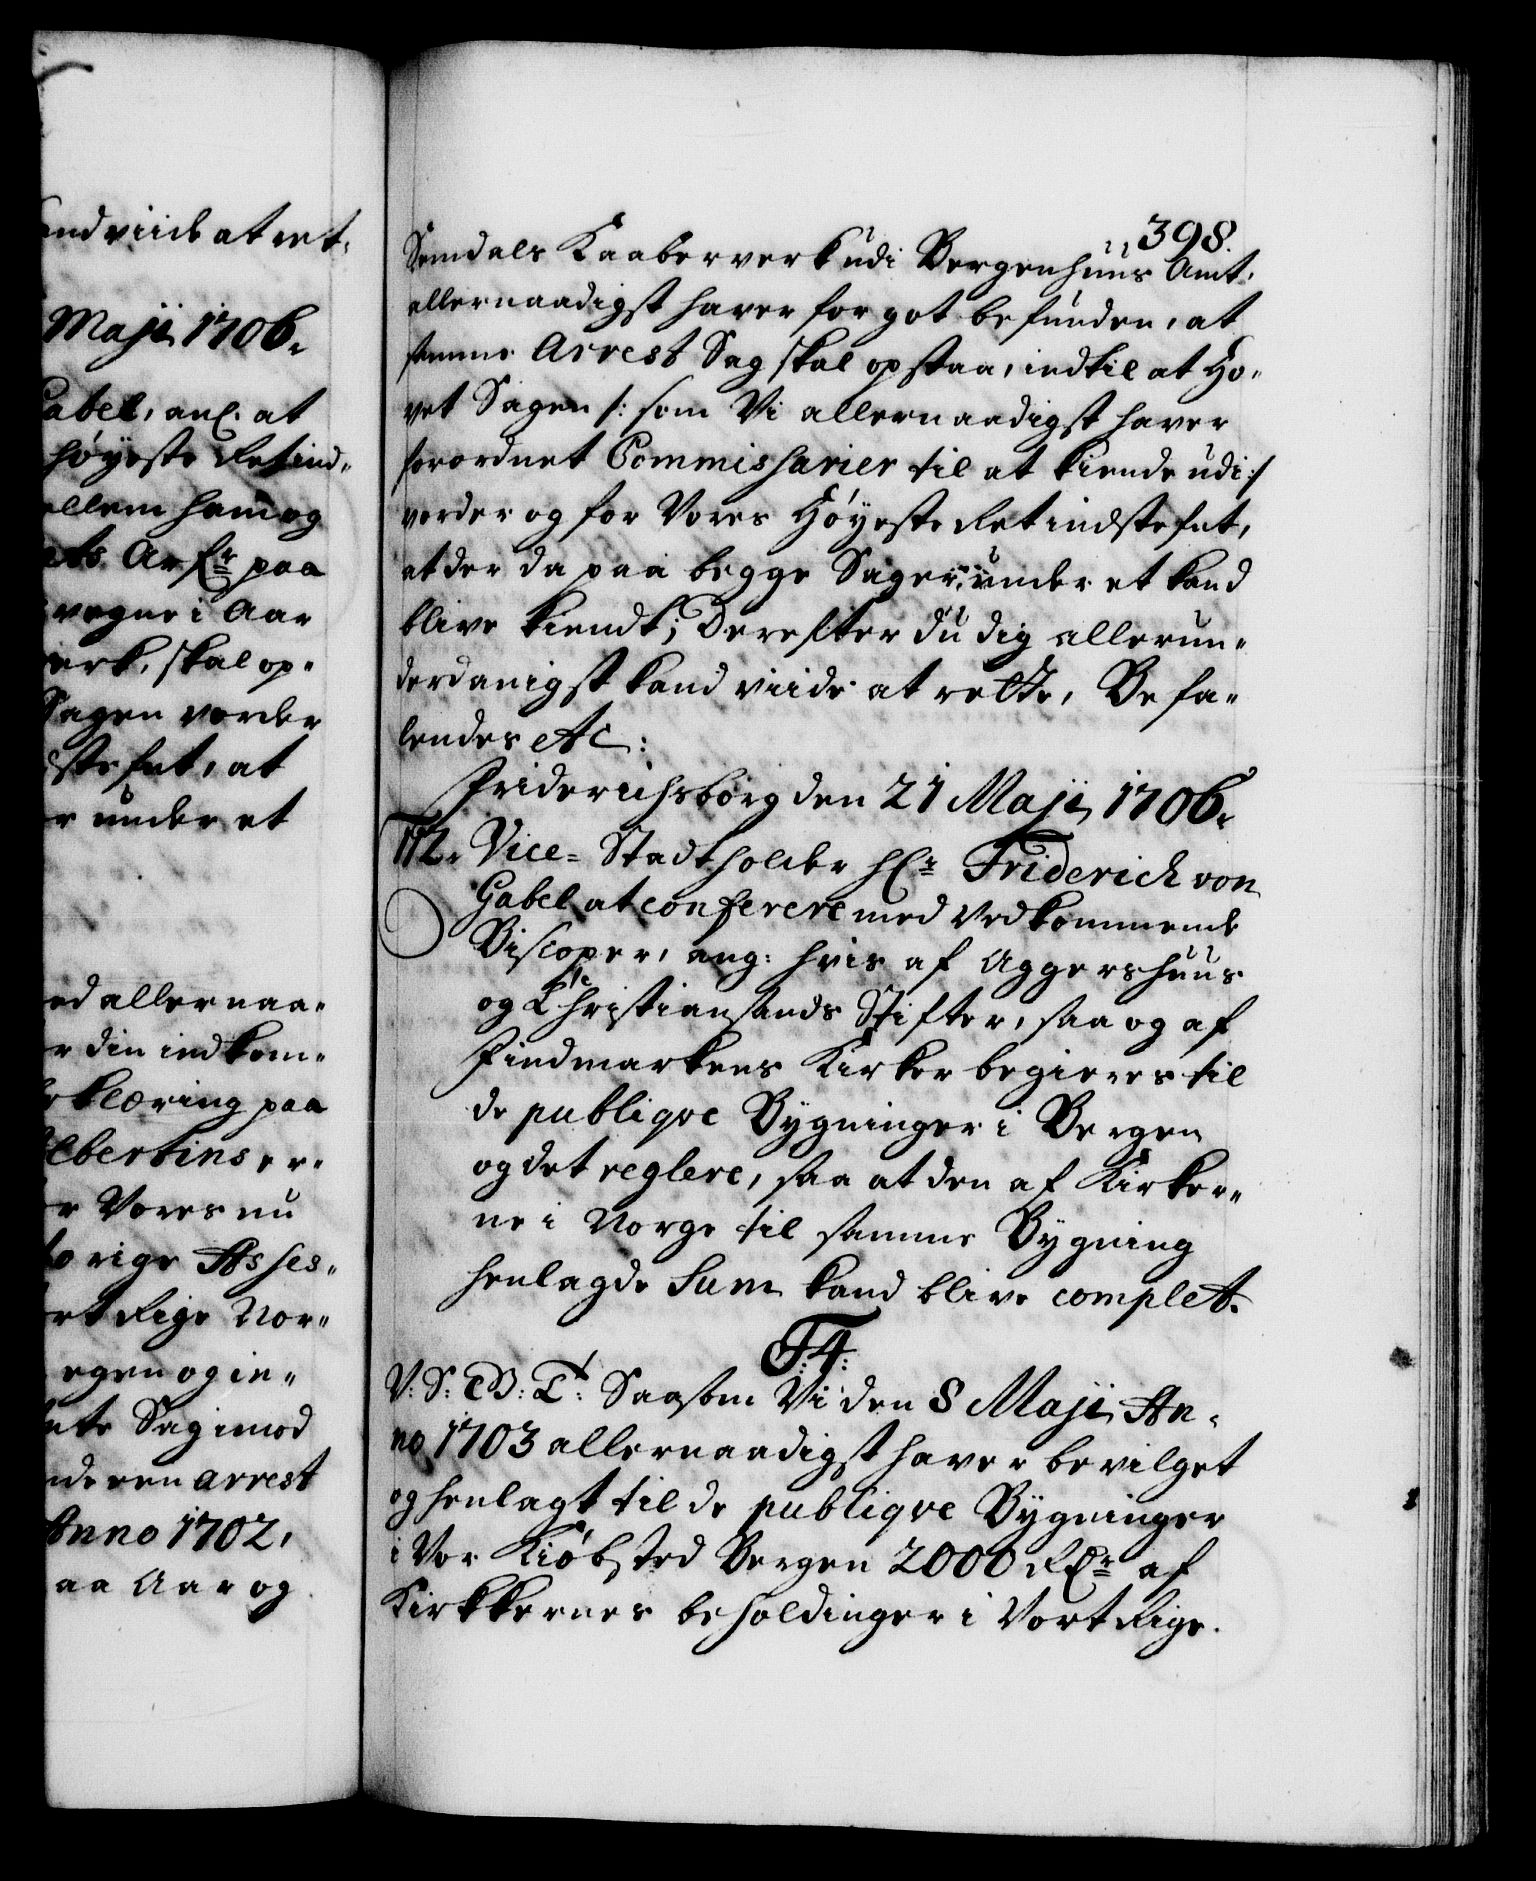 and viide at ret-
Maji 1706.
Gabel, anl. at
høyeste Ret ind-
ellem ham og
paa
vegne i Aar
erk, skal op-
Sagen vorder
stefnt, at
r under et
ed allernaa-
r din indkom-
rklæring paa
lbertins er-
r Vores nu
Asses-
rt Rige Nor-
egen og in-
Sag imod
arrest
Anno 1702,
aa Aar og
398.
Semdals Kaaberverk udi Bergenhuus Amt,
allernaadigst haver for got befunden, at
samme Arrest Sag skal opstaa, indtil at Ho-
vet Sagen /: som Vi allernaadigst haver
forordnet Commissarier til at kiende udi :/
vorder og for Vores Høyeste Ret indstefnt,
at der da paa begge Sager under et kand
blive kiendt; Derefter du dig allerun-
derdanigst kand viide at rette, Befa-
lendes etc:
Friderichsborg den 21 Maji 1706.
112. Vice-Stadtholder Hr. Friderich von
Gabel at conferere med Vedkommende
Biscoper, ang: hvis af Aggershuus
og Christiansands Stifter, saa og af
Findmarkens Kirker begieres til
de publiqve Bygninger i Bergen
og det reglere, saa at den af Kirker-
ne i Norge til samme Bygning
henlagde Sum kand blive complet.
F:4:
V: S: G: B: T: Saasom Vi den 8 Maji An-
no 1703 allernaadigst haver bevilget
og henlagt til de publiqve Bygninger
i Vor Kiøbsted Bergen 2000 Rdr. af
Kirkkernes beholdinger i Vort Rige